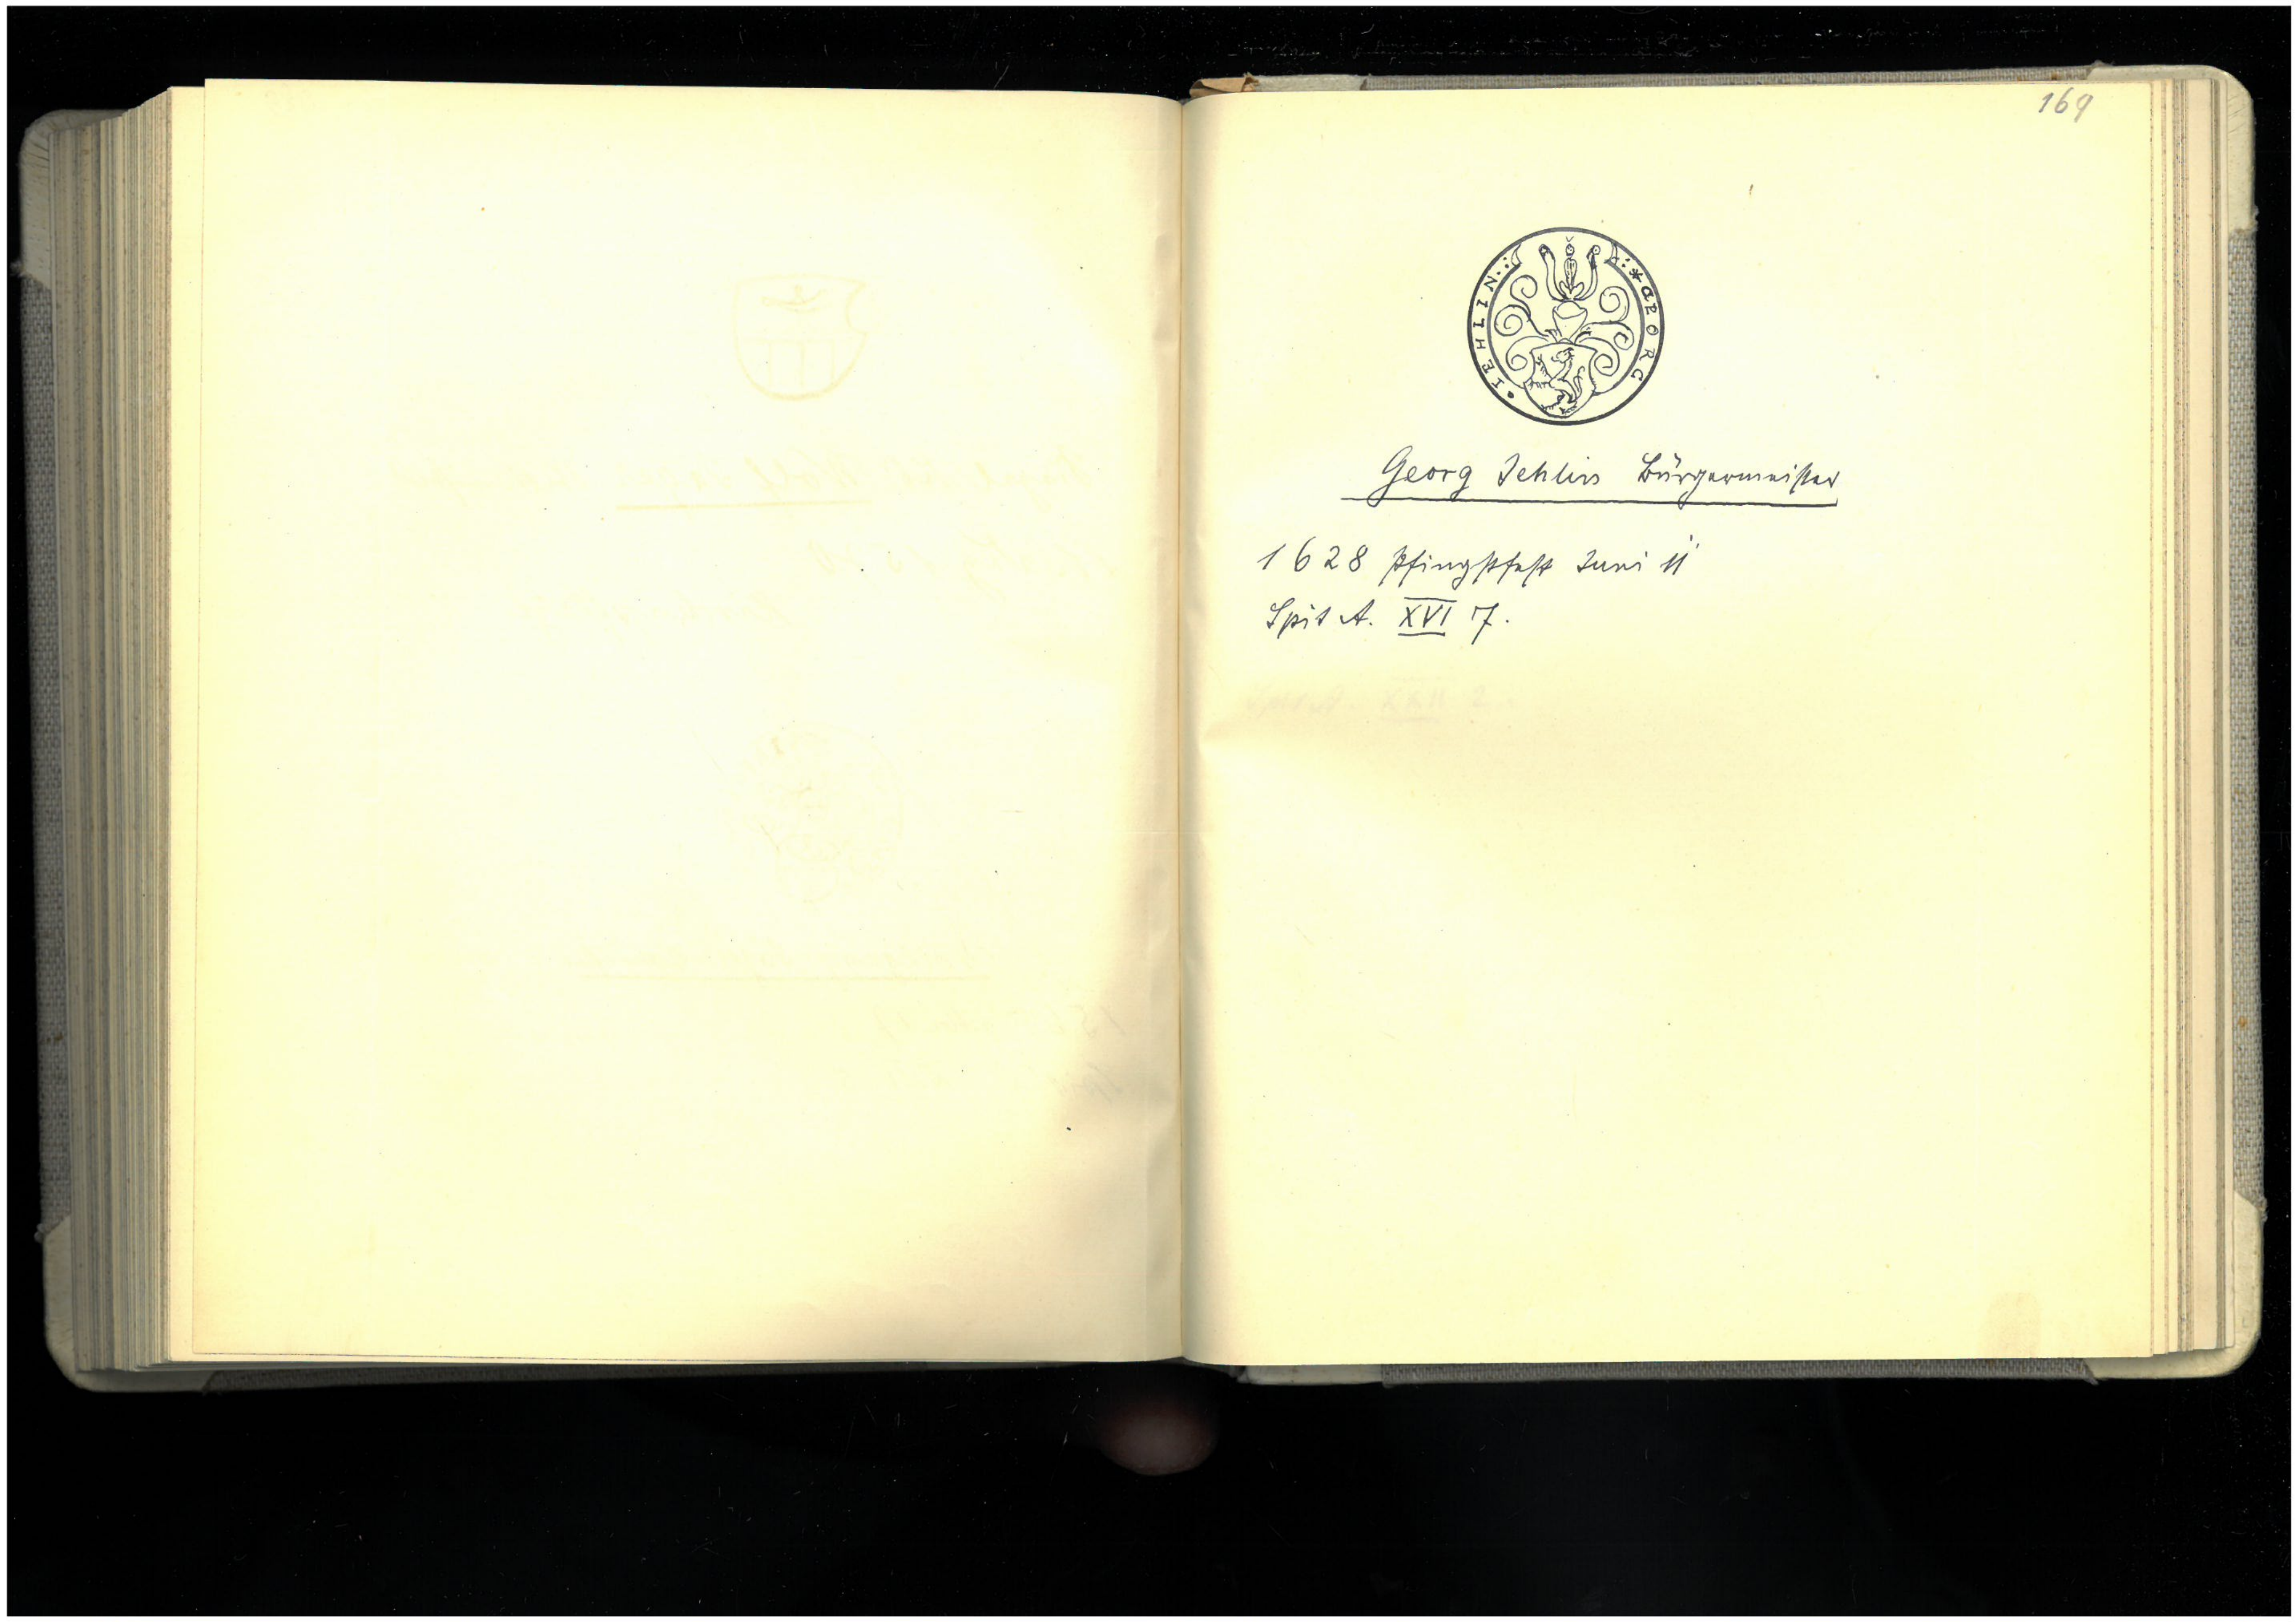 169
* GEORG • IEHLIN
Georg Jehlin Bürgermeister
1628 Pfingstfest Juni 11
Spit A. XVI 7.